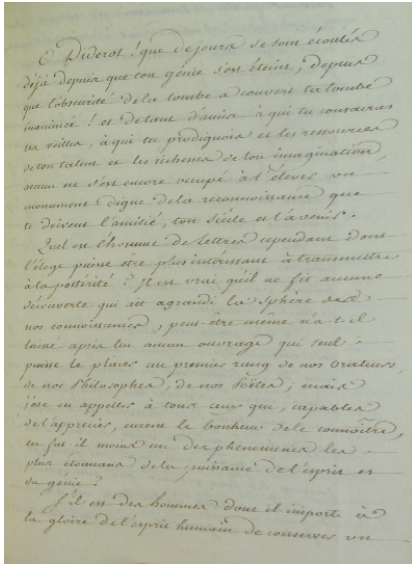 Ô Diderot ! que de jours se sont écoulés
déjà depuis que ton génie s'est éteint, depuis
que l'obscurité de la tombe a couvert ta
inanimée ! et de tant d'amis à qui tu consacras
tes veilles, à qui tu prodiguois et les ressources
de ton talent et les richesses de ton imagination,
aucun ne s'est encore occupé à t'élever un
monument digne de la reconnoissance que
te doivent l'amitié, ton siècle et l'avenir.
Quel est l'homme de Lettres cependant dont
l'éloge puisse être plus intéressant à transmettre
à la postérité ? Il est vrai qu'il ne fit aucune
découverte qui ait agrandi la Sphère de
nos connoissances, peut-être même n'a-t-il
laissé après lui aucun ouvrage qui seul
puisse le placer au premier rang de nos Orateurs,
de nos Philosophes, de nos Poëtes ; mais
j'ose en appeller à tous ceux qui, capables
de l'apprécier, eurent le bonheur de le connoître,
en fut-il moins un des phénomènes les
plus étonnans de la puissance de l'esprit et
du génie ?
S'il est des hommes dont il importe à
la gloire de l'esprit humain de conserver un